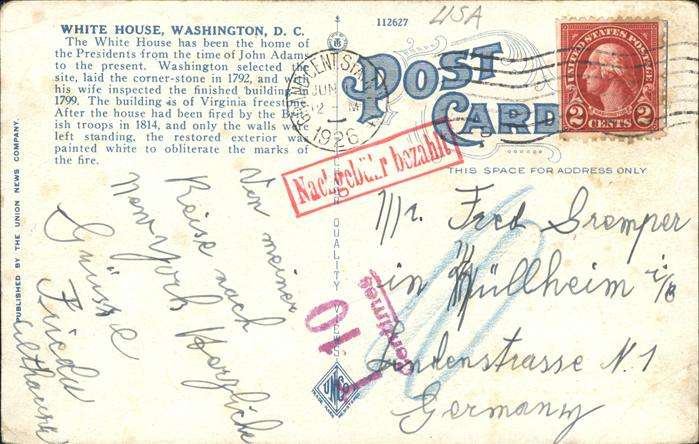 USA
112627
WHITE HOUSE, WASHINGTON, D. C.
The White House has been the home of
the Presidents from the time of John Adams
to the present. Washington selected the
site, laid the corner-stone in 1792, and
his wife inspected the finished building
1799. The building is of Virginia freestone
After the house had been fired by the
ish troops in 1814, and only the walls
left standing, the restored exterior was
painted white to obliterate the marks of
the fire.
POST
CARD
UNITED STATES POSTAGE
2 CENTS 2
JUN
12 M
1926
Nachgebühr bezahlt
THIS SPACE FOR ADDRESS ONLY
PUBLISHED BY THE UNION NEWS COMPANY.
QUALITY VIEWS
Von meiner
Reise nach
New York Herzliche
Grüsse
Frieda
Mr. Fred Gremper
in Müllheim i/B
Lindenstrasse N. 1
Germany
10
Centimes
10
UNCO